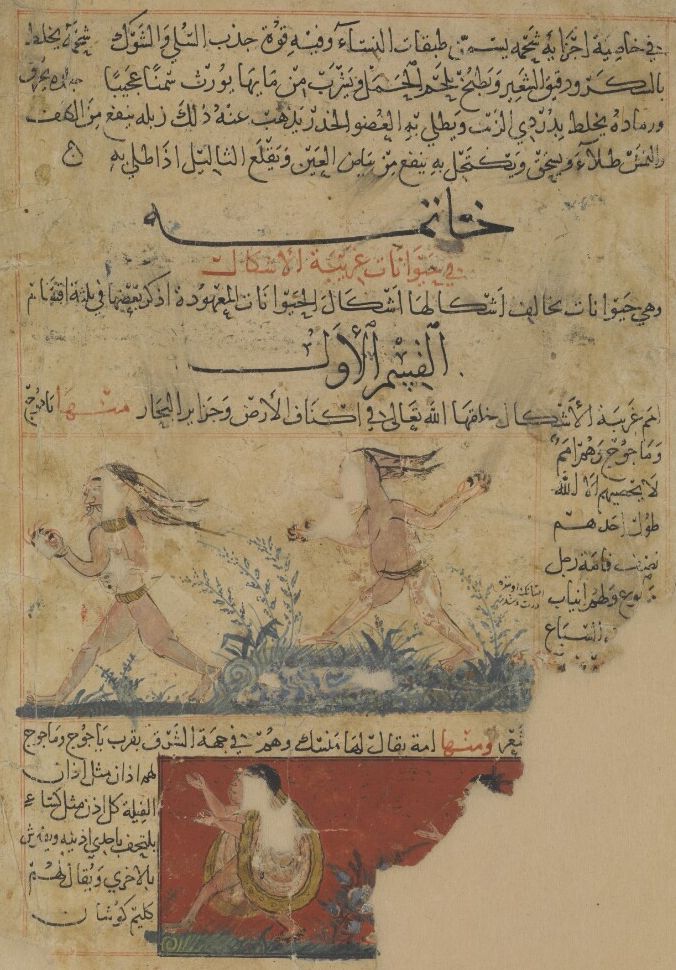 في خاصية اجزائه شحمه يسمن طبقات النساء وفيه قوة جذب السلي والشوك شحمه يخلط
بالسكر ودقيق الشعير ويطبخ بلحم الحمل ويشرب من مايها يورث سمنا عجيبا جلده يحرق
ورماده يخلط بدردي الزيت ويطلي به العضو الخدر يذهب عنه ذلك زبله ينفع من الكلف
والنمش طلاء ويسحق ويكتحل به ينفع من بياض العين ويقلع الثاليل اذا طلي به
خاتمه
في حيوانات غريبة الاشكال
وهي حيوانات يخالف اشكالها اشكال الحيوانات المعهودة اذكر بعضها في ثلثة اقسام
القسم الأول
امم غريبة الأشكال خلقها الله تعالى في اكناف الأرض وجزاير البحار منها ياجوج
وماجوج وهم امم
لا يحصيهم الا الله
طول احدهم
نصف قامة رجل
مربوع ولهم انياب
السباع
شعر ومنها امة يقال لها منسك وهم في جهة الشرق بقرب ياجوج وماجوج
لهم اذان مثل اذان
الفيلة كل اذن مثل كساء
يلتحف باحدي اذنيه ويفترش
بالاخري ويقال لهم
كليم كوشان